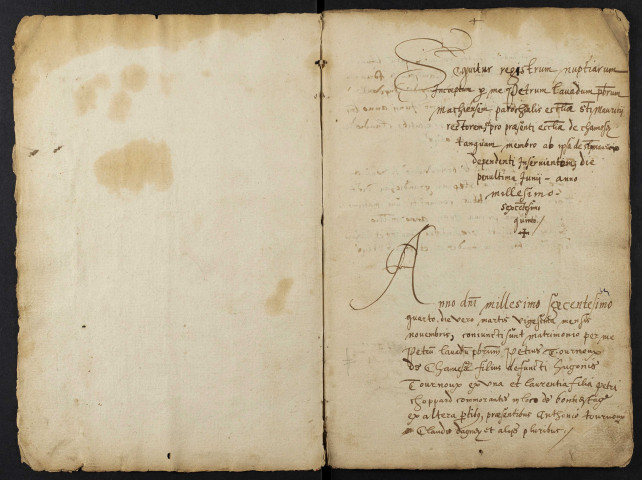 Sequitur registrum nuptiarum
Inceptum p me Petrum Lavadum pbrum
parochialis eccliæ sti Mauritii
rectorem pro præsenti ecclia de chamosa
tanquam membro ab ipsa de
dependenti Inservientem die
penultima Junii anno
millesimo
sexcetesimo
quinto./
Anno dni millesimo sexcentesimo
quarto, die vero martis vigesima mensis
novembris, coniuncti sunt matrimonio per me
Petrū Lavadū pbrum Petrus Tournoux
de filius defuncti Hugonis
Tournoux ex una et laurentia filia petri
choppard commorantis in loco de
ex altera ptib, præsentibus Anthonio tournoux
Claudio et aliis pluribus./